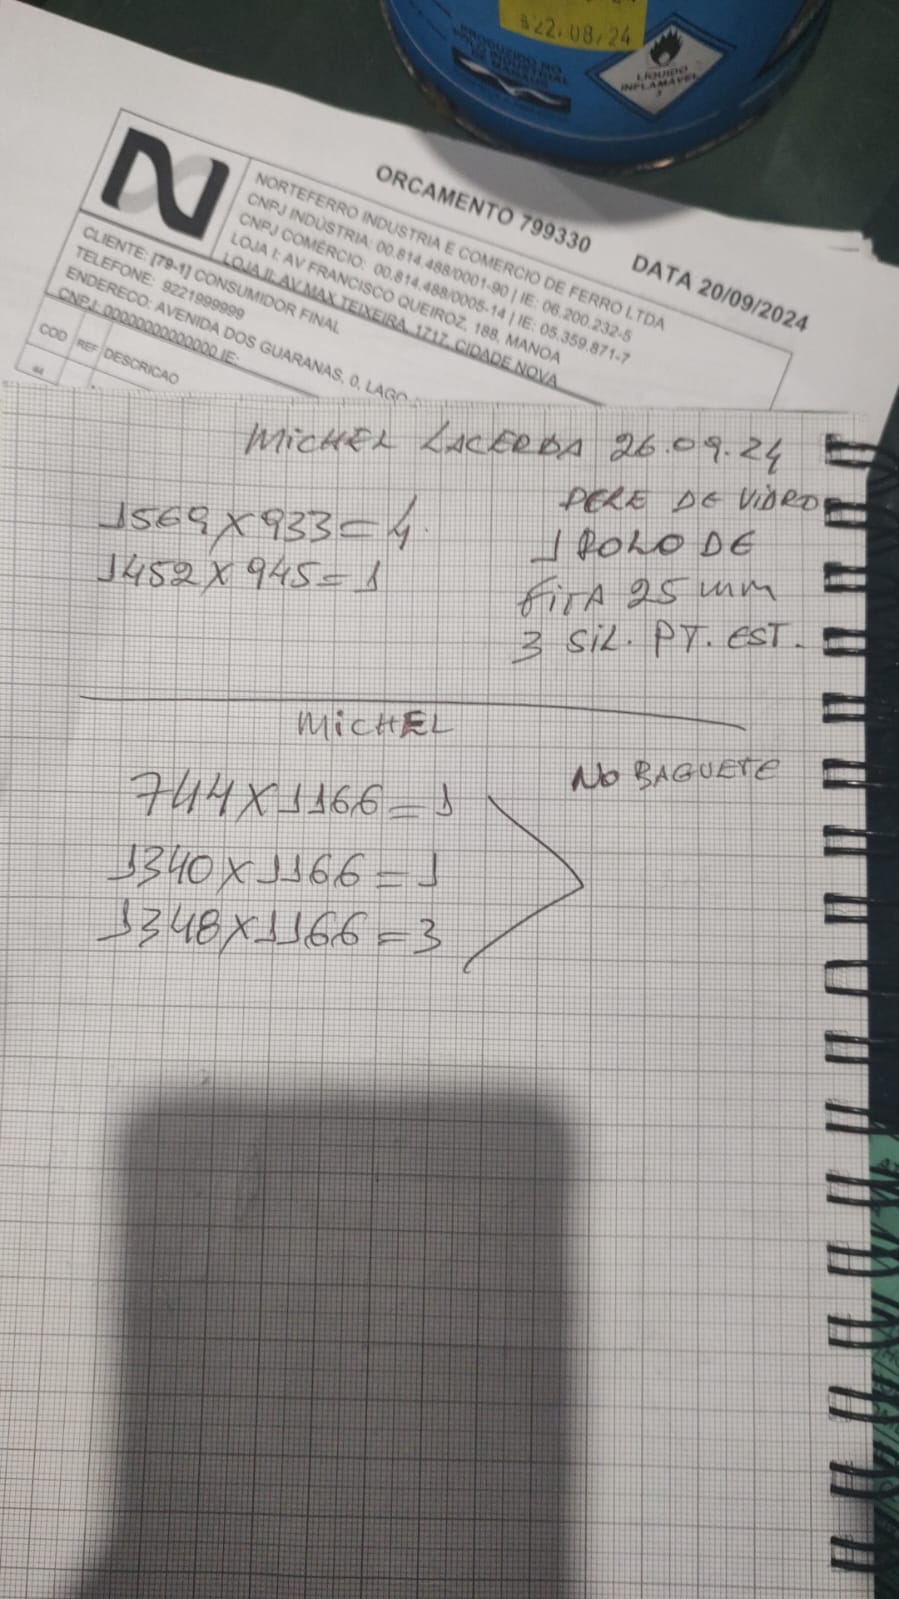 22.08.24
PRODUZIDO NO
PÓLO INDUSTRIAL
DE MANAUS
LÍQUIDO
INFLAMÁVEL
3
ORCAMENTO 799330
DATA 20/09/2024
NORTEFERRO INDUSTRIA E COMERCIO DE FERRO LTDA
CNPJ INDÚSTRIA: 00.814.488/0001-90 | IE: 06.200.232-5
CNPJ COMÉRCIO: 00.814.488/0005-14 | IE: 05.359.871-7
LOJA I: AV FRANCISCO QUEIROZ, 188, MANOA
LOJA II: AV MAX TEIXEIRA, 1717, CIDADE NOVA
CLIENTE: [79-1] CONSUMIDOR FINAL
TELEFONE: 9221999999
ENDERECO: AVENIDA DOS GUARANAS, 0, LAGO
CNPJ: 00000000000000 IE:
COD REF DESCRICAO
MICHEL LACERDA 26.09.24
1569X933=4.
1452X945=1
PELE DE VIDRO
1 ROLO DE
FITA 25 mm
3 SIL. PT. EST.
MICHEL
744X1166=1
1340X1166=1
1348X1166=3
NO BAGUETE